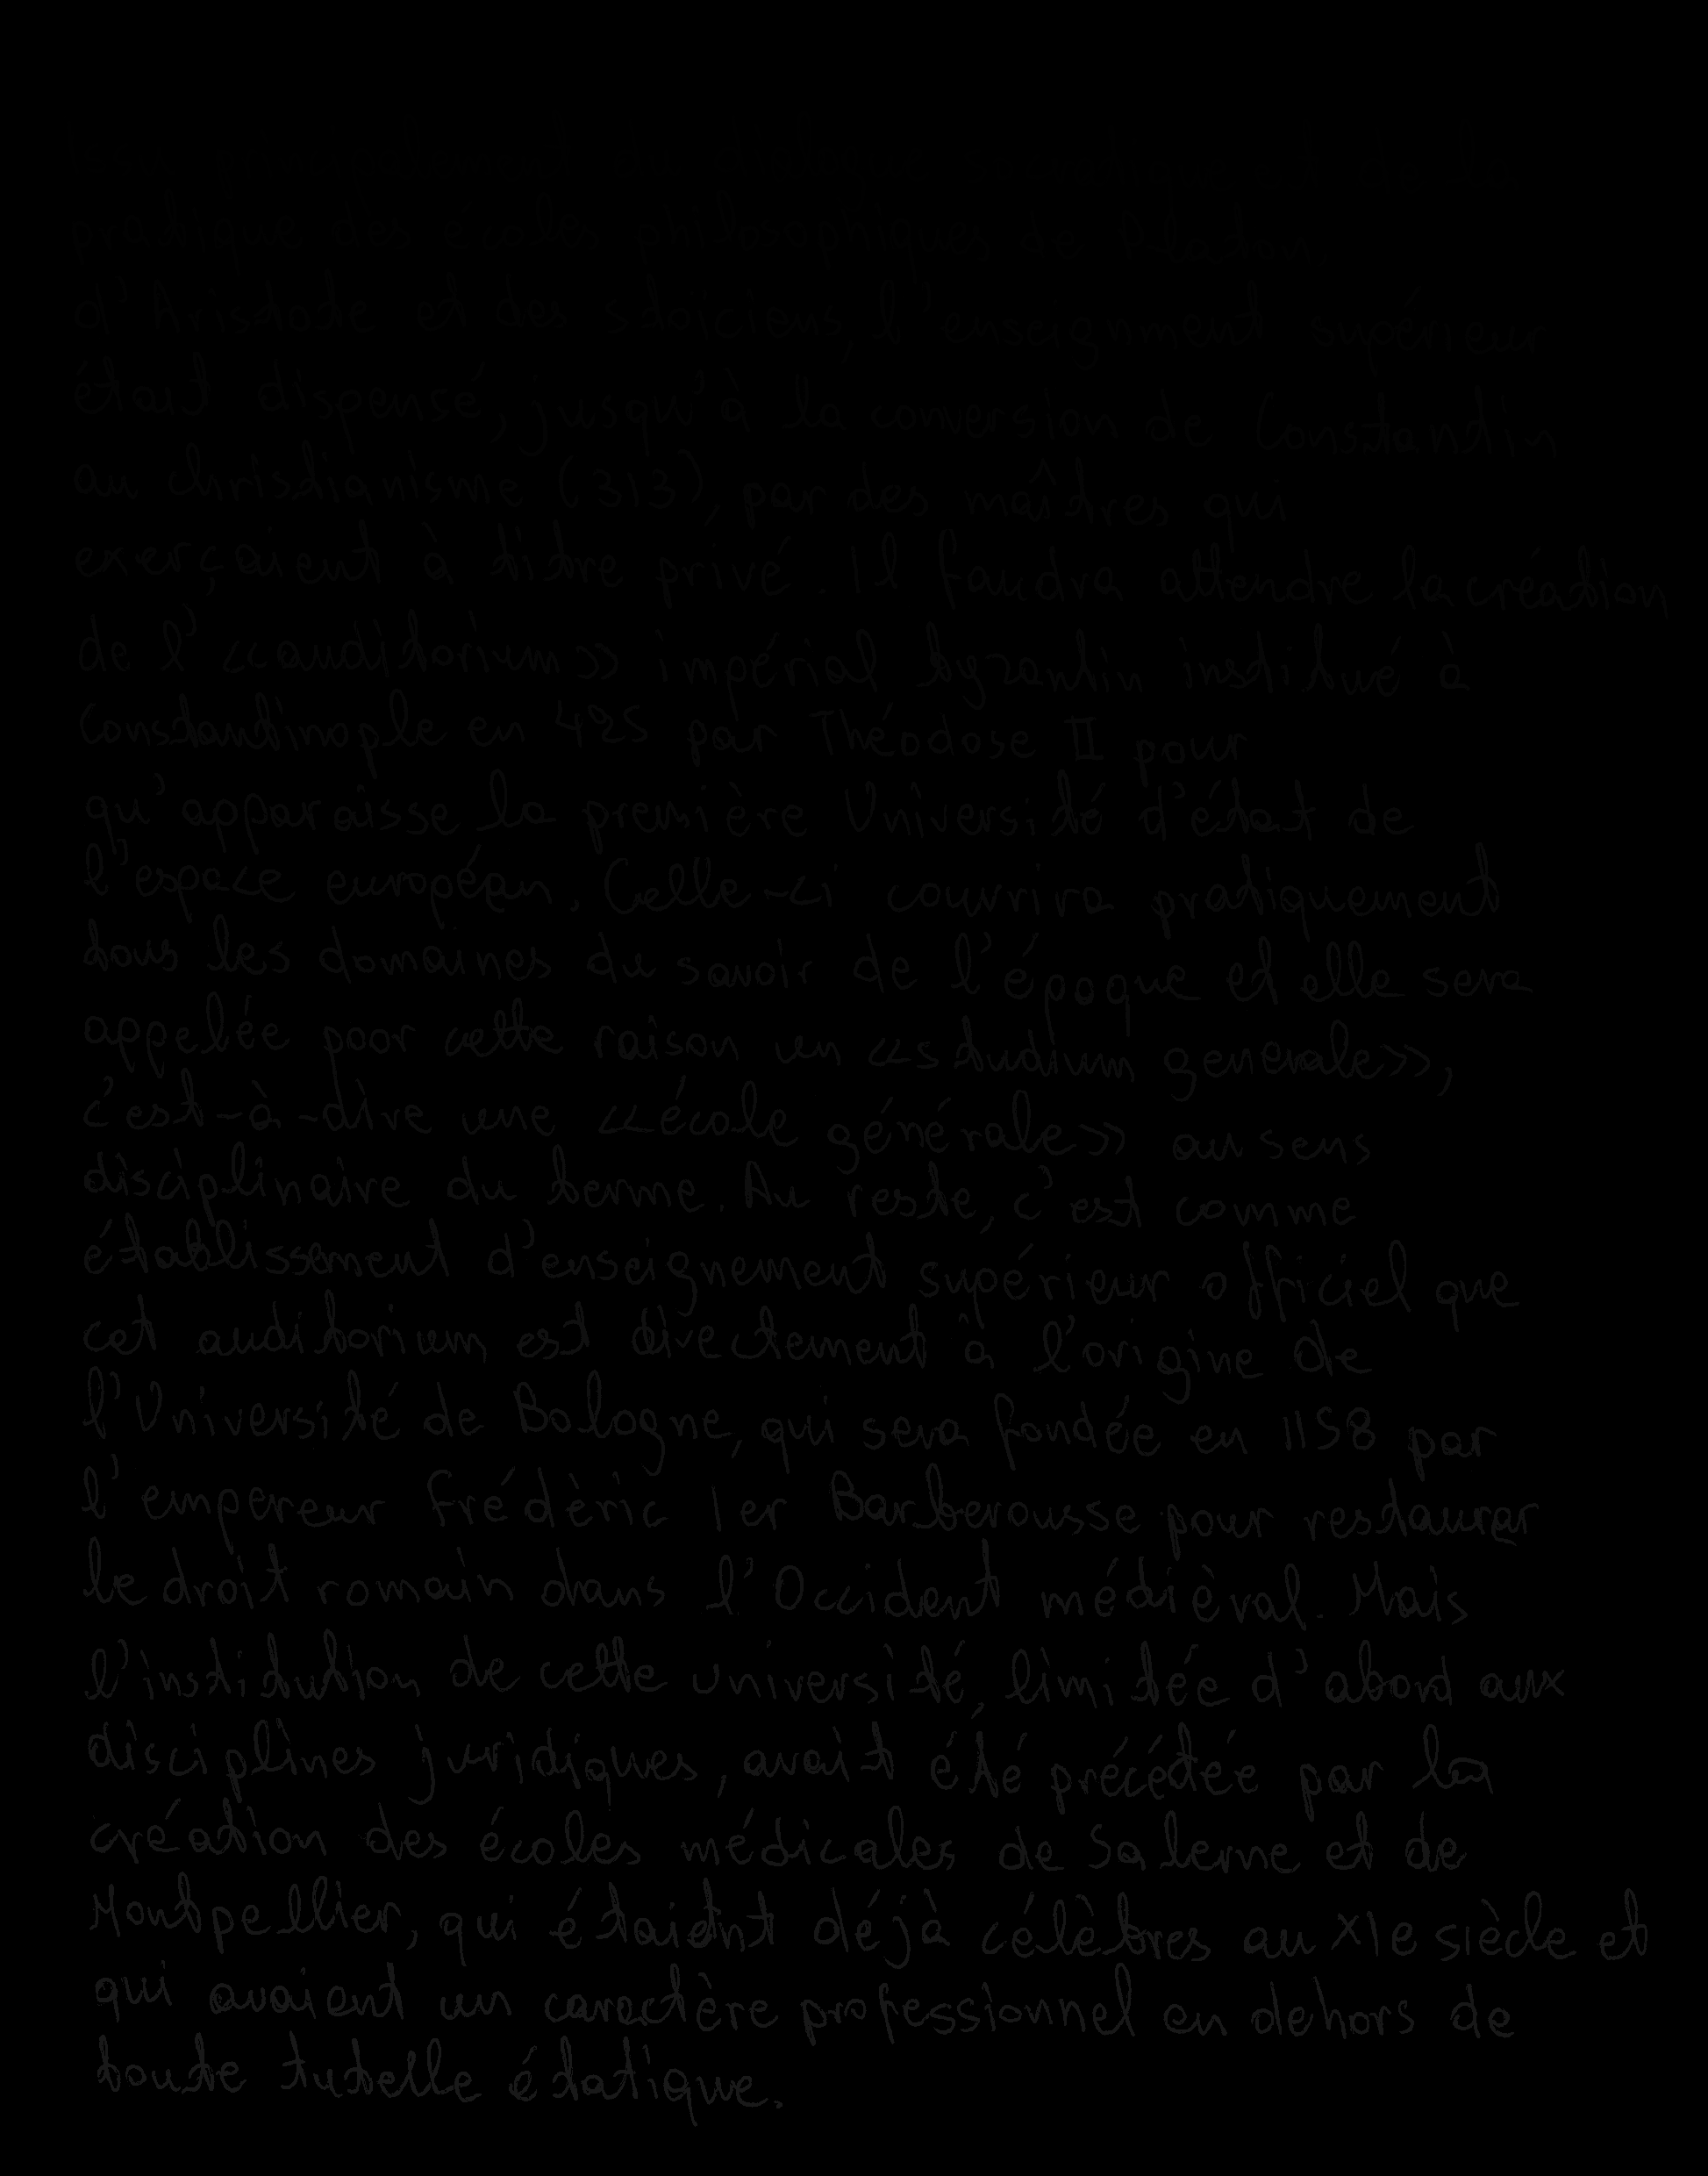 pratique des écoles philosophiques de Platon,
d'Aristote et des stoïciens, l'enseignment supérieur
était dispensé, jusqu'à la conversion de Constantin
au christianisme (313), par des maîtres qui
exerçaient à titre privé. Il faudra attendre la création
de l'«auditorium» impérial byzantin institué à
Constantinople en 425 par Théodose II pour
qu'apparaisse la première Université d'état de
l'espace européan. Celle-ci couvrira pratiquement
tous les domaines du savoir de l'époque et elle sera
appelée poor cette raison un «studium generale»,
c'est-à-dire une «école générale» au sens
disciplinaire du terme. Au reste, c'est comme
établissement d'enseignement supérieur officiel que
cet auditorium est directement à l'origine de
l'Université de Bologne, qui sera fondée en 1158 par
l'empereur Frédèric 1er Barberousse pour restaurar
le droit romain dans l'Occident médièval. Mais
l'institution de cette université, limitée d'abord aux
disciplines juridiques, avait été précétée par la
création des écoles médicales de Salerne et de
Montpellier, qui étaient déjà célèbres au XIe siècle et
qui avaient un caractère professionnel en dehors de
toute tutelle étatique.